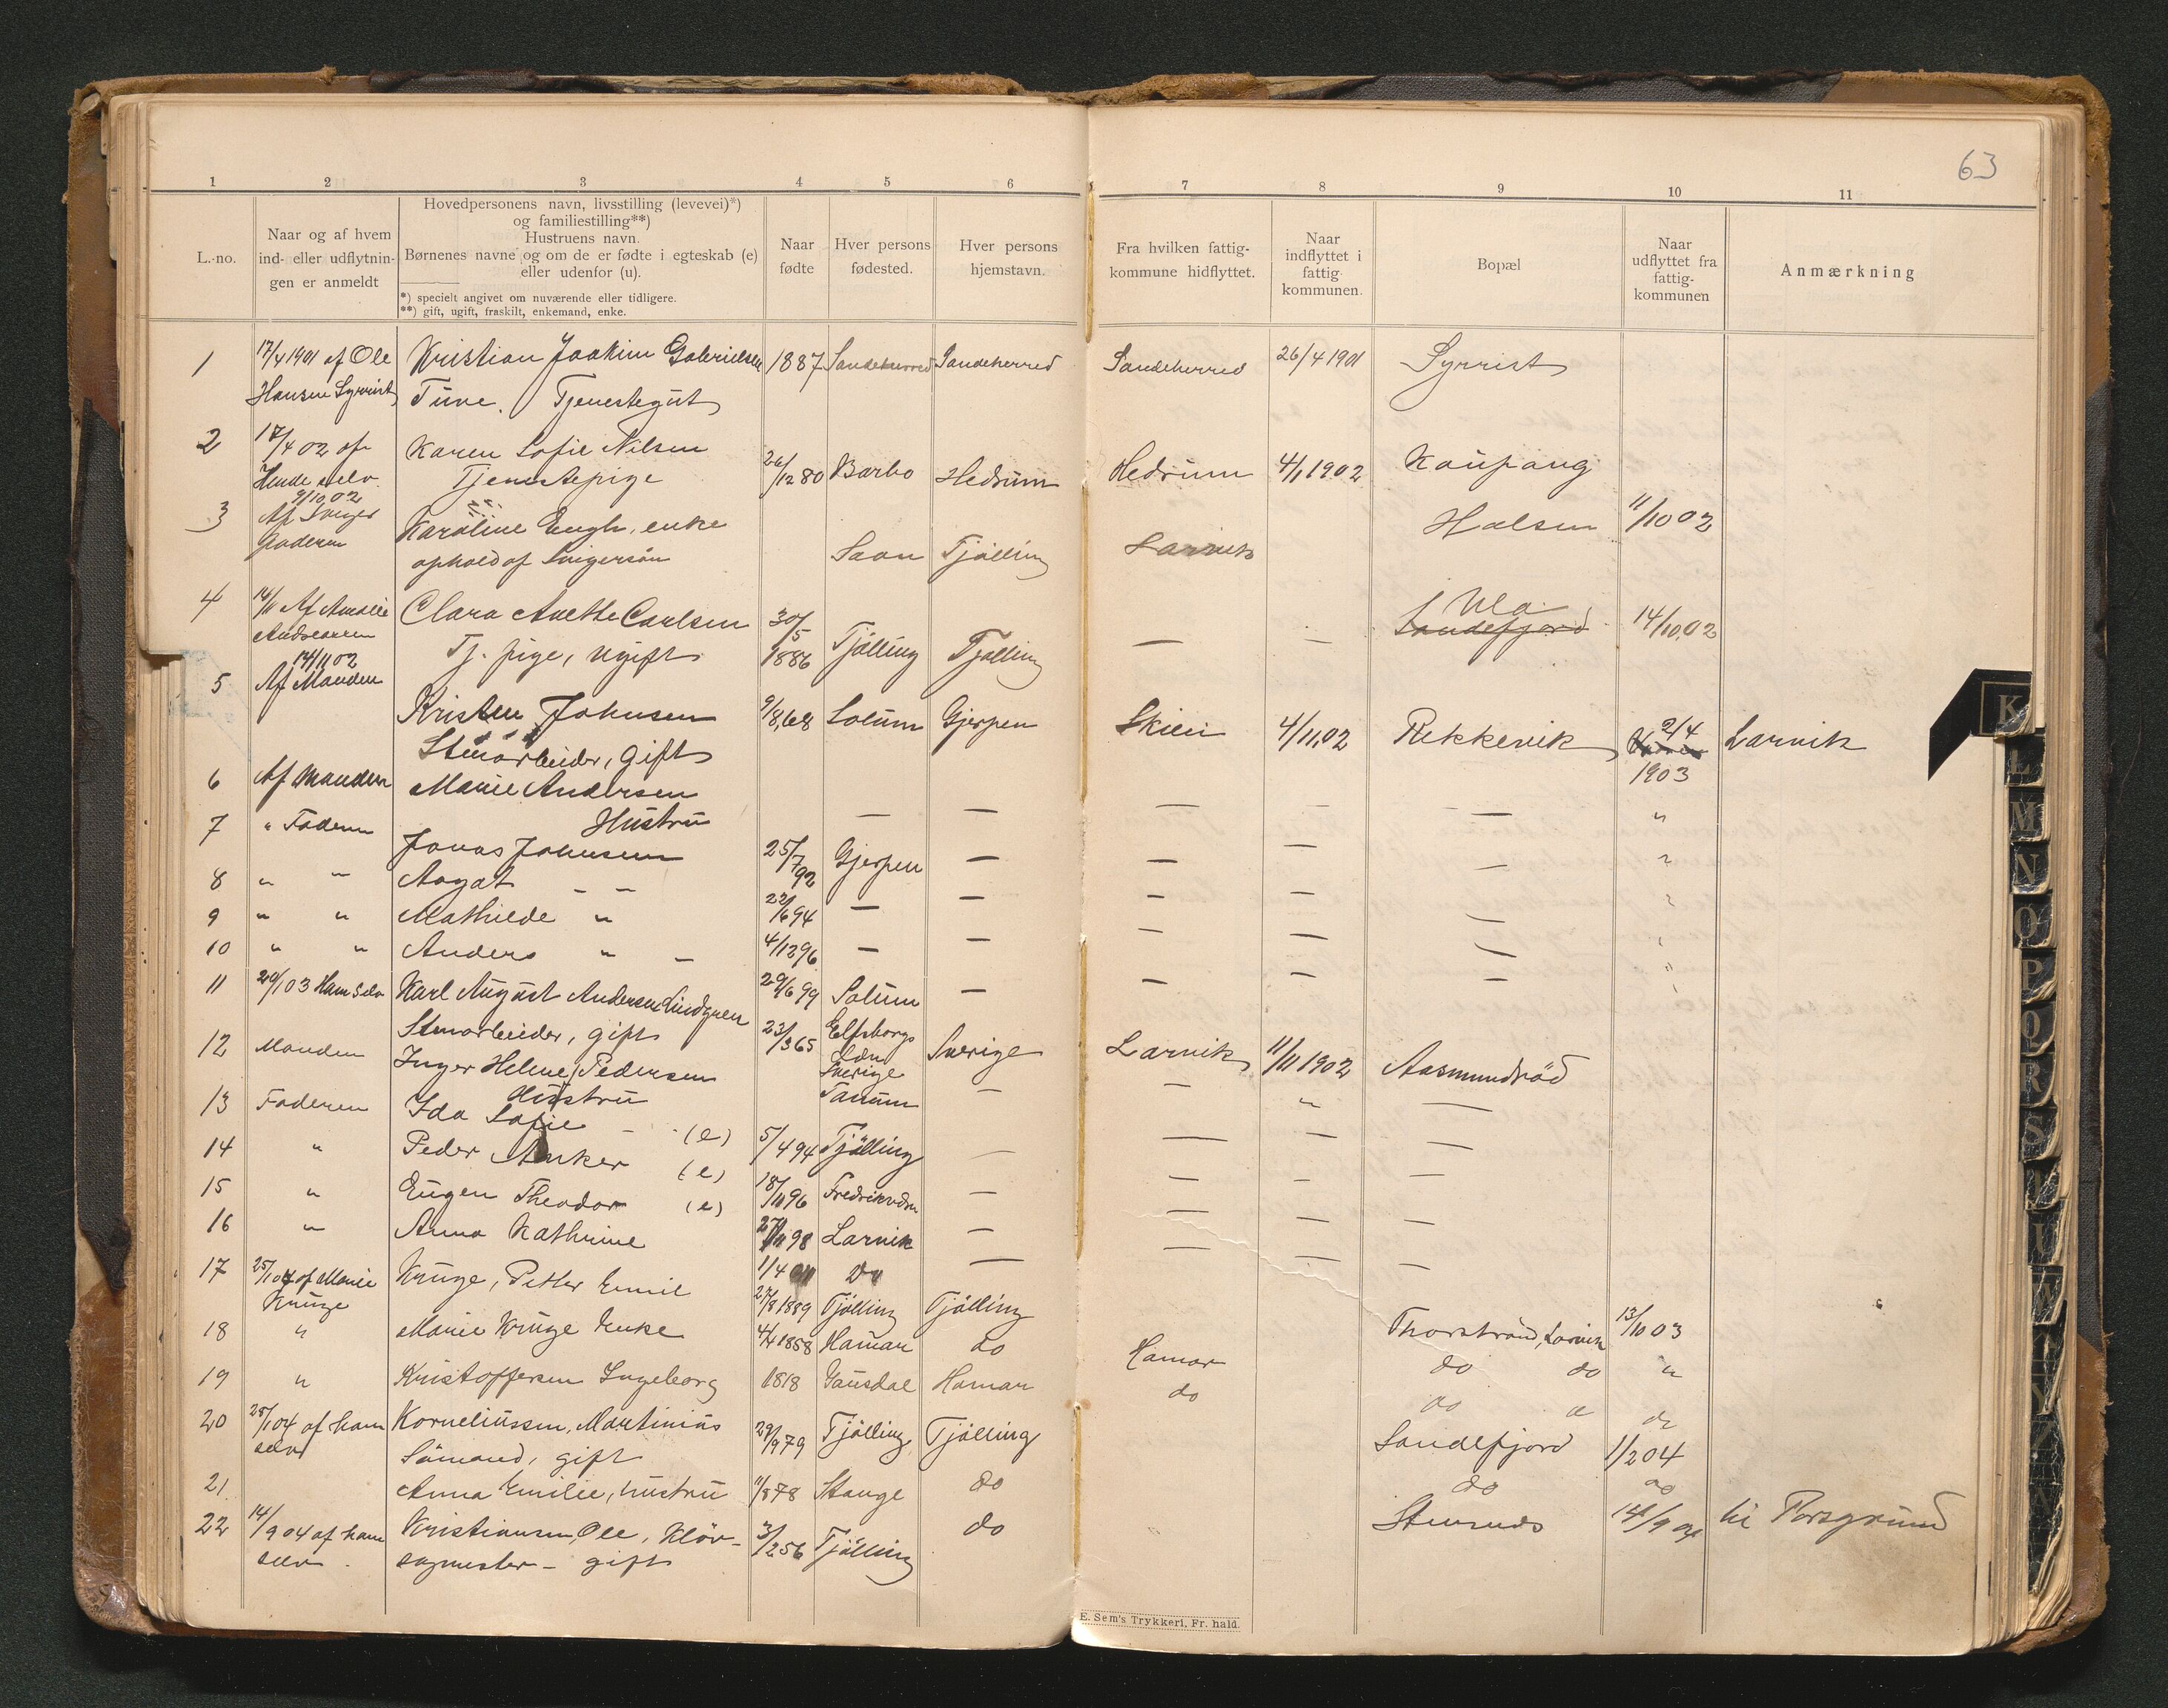 63
1 2 3 4 5 6 7 8 9 10 11
L.-no.
Naar og af hvem
ind- eller udflytnin-
gen er anmeldt
Hovedpersonens navn, livsstilling (levevei)*)
og familiestilling**)
Hustruens navn.
Børnenes navne og om de er fødte i egteskab (e)
eller udenfor (u).
*) specielt angivet om nuværende eller tidligere.
**) gift, ugift, fraskilt, enkemand, enke.
Naar
fødte
Hver persons
fødested.
Hver persons
hjemstavn.
Fra hvilken fattig-
kommune hidflyttet.
Naar
indflyttet i
fattig-
kommunen.
Bopæl
Naar
udflyttet fra
fattig-
kommunen
Anmærkning
1 17/4 1901 af Ole Kristian Joakim Gabrielsen 1887 Sandeherred Sandeherred Sandeherred 26/4 1901 Syrrist
Hansen Syrrist Tune. Tjenestegut
2 17/4 02 af Karen Sofie Nilsen 26/12 80 Barbo Hedrum Hedrum 4/1 1902 Kaupang
Hende selv. Tjenestepige
9/10 02
3 Af Sviger Karoline Engh, enke Halsen 11/10 02
faderen ophold af Svigersön Saon Tjölling Larvik
4 14/11 Af Amalie Clara Anette Carlsen 30/5 Ula 14/10.02
Andreasen Tj. pige, ugift 1886 Tjölling Tjölling — — Sandefjord
14/11 02
5 Af Manden Kristen Johnsen 9/8,68 Solum Gjerpen Skien 4/11,02 Rekkevik 2/4 Larvik
Stenarbeider, Gift 1903
6 Af Manden Marie Andersen
Hustru — — — — — "
7 " Faderen Jonas Johnsen 25/7 92 Gjerpen — — — — "
8 " " Aagat — — 22/6 94 — — — — — "
9 " " Mathilde " 4/12 96 — — — — — "
10 " " Anders " — 29/6 99 Solum — — — — "
11 29/1 03 Ham selv Karl August Andersen Lindgren 23/3 65 Elfsborgs Sverige Larvik 11/11 1902 Aasmundröd
Stenarbeider, gift Sverige
12 Manden Inger Helene Pedersen Tanum — — " —
Hustru
13 Faderen Ida Sofie — (e) 5/4 94 Tjölling — — — —
14 " Peder Anker (e) 18/11 96 Fredriksværn — — — —
15 " Eugen Theodor (e) 27/11 98 Larvik — — — —
16 " Anna Kathrine 1/4 01 Do — — — —
17 25/1 04 af Marie Kruge, Petter Emil 27/8 1889 Tjölling Tjölling Thorstrand, Larvik 13/10 03
Kruge
18 " Marie Kruge Enke 4/4 1858 Hamar do Hamar do do "
19 " Kristoffersen Ingeborg 1818 Gausdal Hamar do do do
20 25/1 04 af ham Korneliussen, Martinius 29/9 79 Tjölling Tjölling Sandefjord 1/2 04
selv Sömand, gift
21 Anna Emilie, hustru 11/8 78 Stange do do do
22 14/9 04 af ham Kristiansen, Ole, Klöv- 3/2 56 Tjölling do Stensnds 14/9 04 til Porsgrund
selv. sagmester — gift
E. Sem's Trykkeri, Fr. hald.
K
L
M
N
O
P
Q
R
S